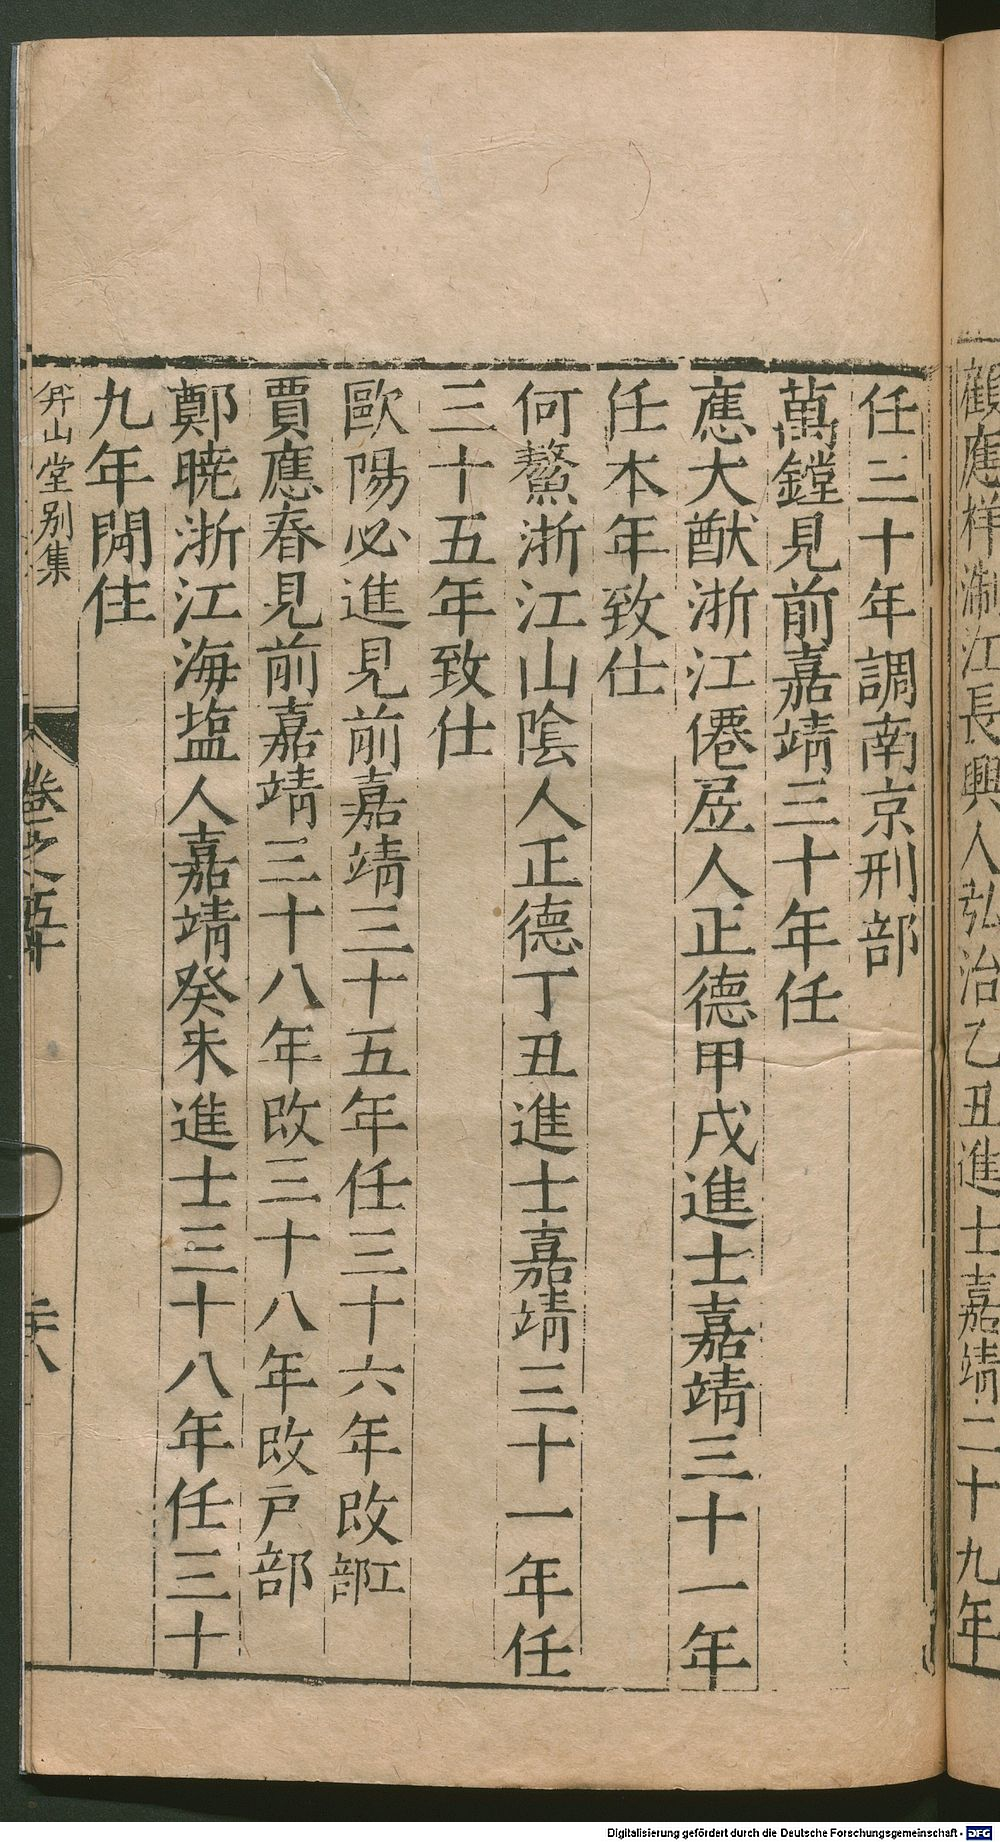 顧應祥浙江長興人弘治乙丑進士嘉靖二十九年
任三十年調南京刑部
萬鏜見前嘉靖三十年任
應大猷浙江僊居人正德甲戌進士嘉靖三十一年
任本年致仕
何鰲浙江山陰人正德丁丑進士嘉靖三十一年任
三十五年致仕
歐陽必進見前嘉靖三十五年任三十六年改工部
賈應春見前嘉靖三十八年改三十八年改戶部
鄭暁浙江海塩人嘉靖癸未進士三十八年任三十
九年閒住
弇山堂別集
卷之五十
Digitalisierung gefördert durch die Deutsche Forschungsgemeinschaft - DFG